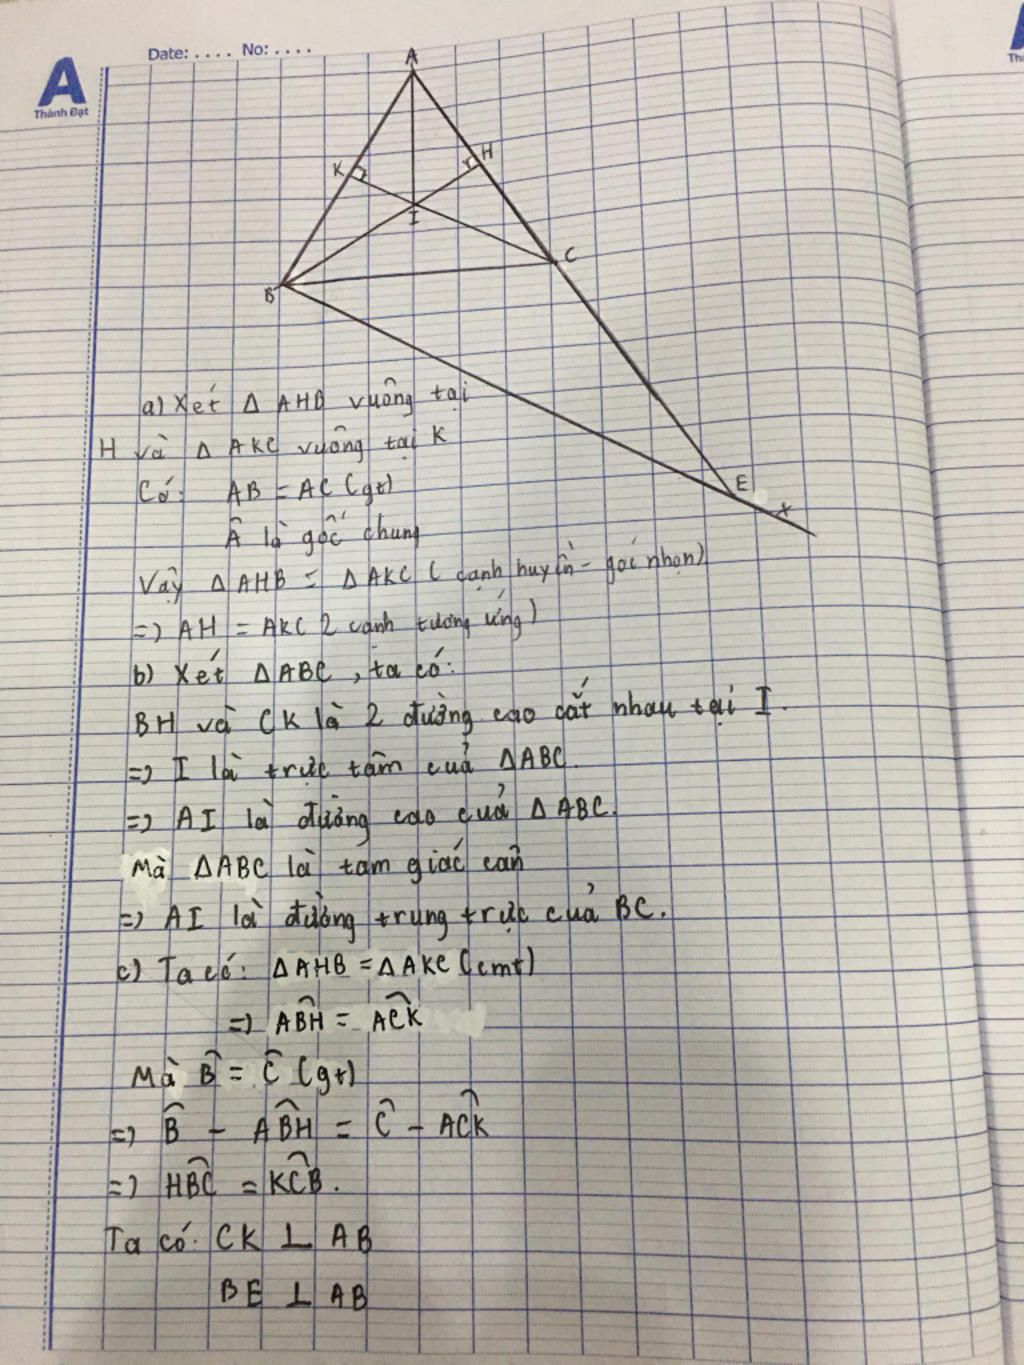 Date: . . . . No: . . . .
A
Thành Đạt
Th
A
K
H
I
B
C
E
x
a) Xét Δ AHB vuông tại
H và Δ AKC vuông tại K
Có: AB = AC (gt)
Â là gốc chung
Vậy Δ AHB = Δ AKC ( cạnh huyền - goí nhọn)
=> AH = AK( 2 cạnh tương ứng)
b) Xét ΔABC , ta có:
BH và CK là 2 đường cao cắt nhau tại I.
=> I là trực tâm của ΔABC.
=> AI là đường cao của Δ ABC.
Mà ΔABC là tam giác cân
=> AI là đường trung trực của BC.
c) Ta có: ΔAHB = ΔAKC (cmt)
=> ABH = ACK
Mà B̂ = Ĉ (gt)
=> B̂ - ABH = Ĉ - ACK
=> HBC = KCB.
Ta có: CK ⊥ AB
BE ⊥ AB